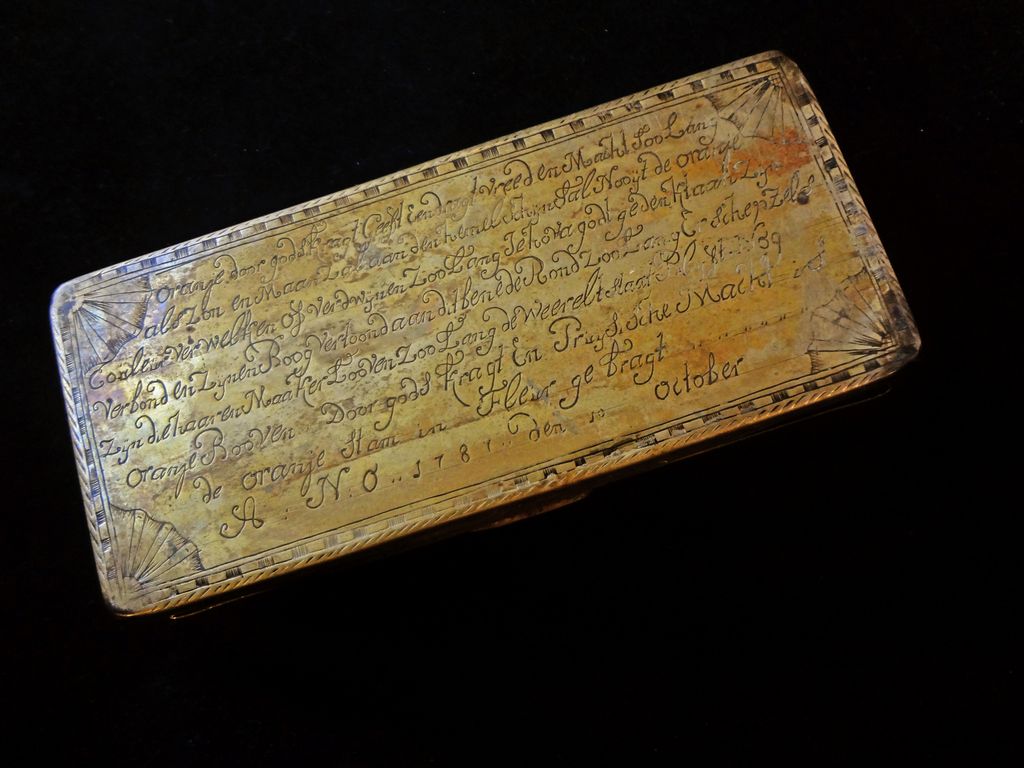 Oranje door gods kragt Geeft Eendragt vreed en Macht Soo Lang
als Zon en Maan Zal aan den hemel Schijn Sal Nooyt de oranje
Couleur verwelken of verdwijnen Zoo Lang Jehova godt gedenkt aan Zijn
verbond en Zynen Boog vertoond aan dit beneede Rond Zoo Lang Er schepzels
Zyn die haaren Maaker Looven Zoo Lang de Weerelt staat
oranje Booven Door gods kragt En Pruys sche Macht is
de oranje stam in Fleur ge bragt
A : N : O .. 1787 .. den 10 october